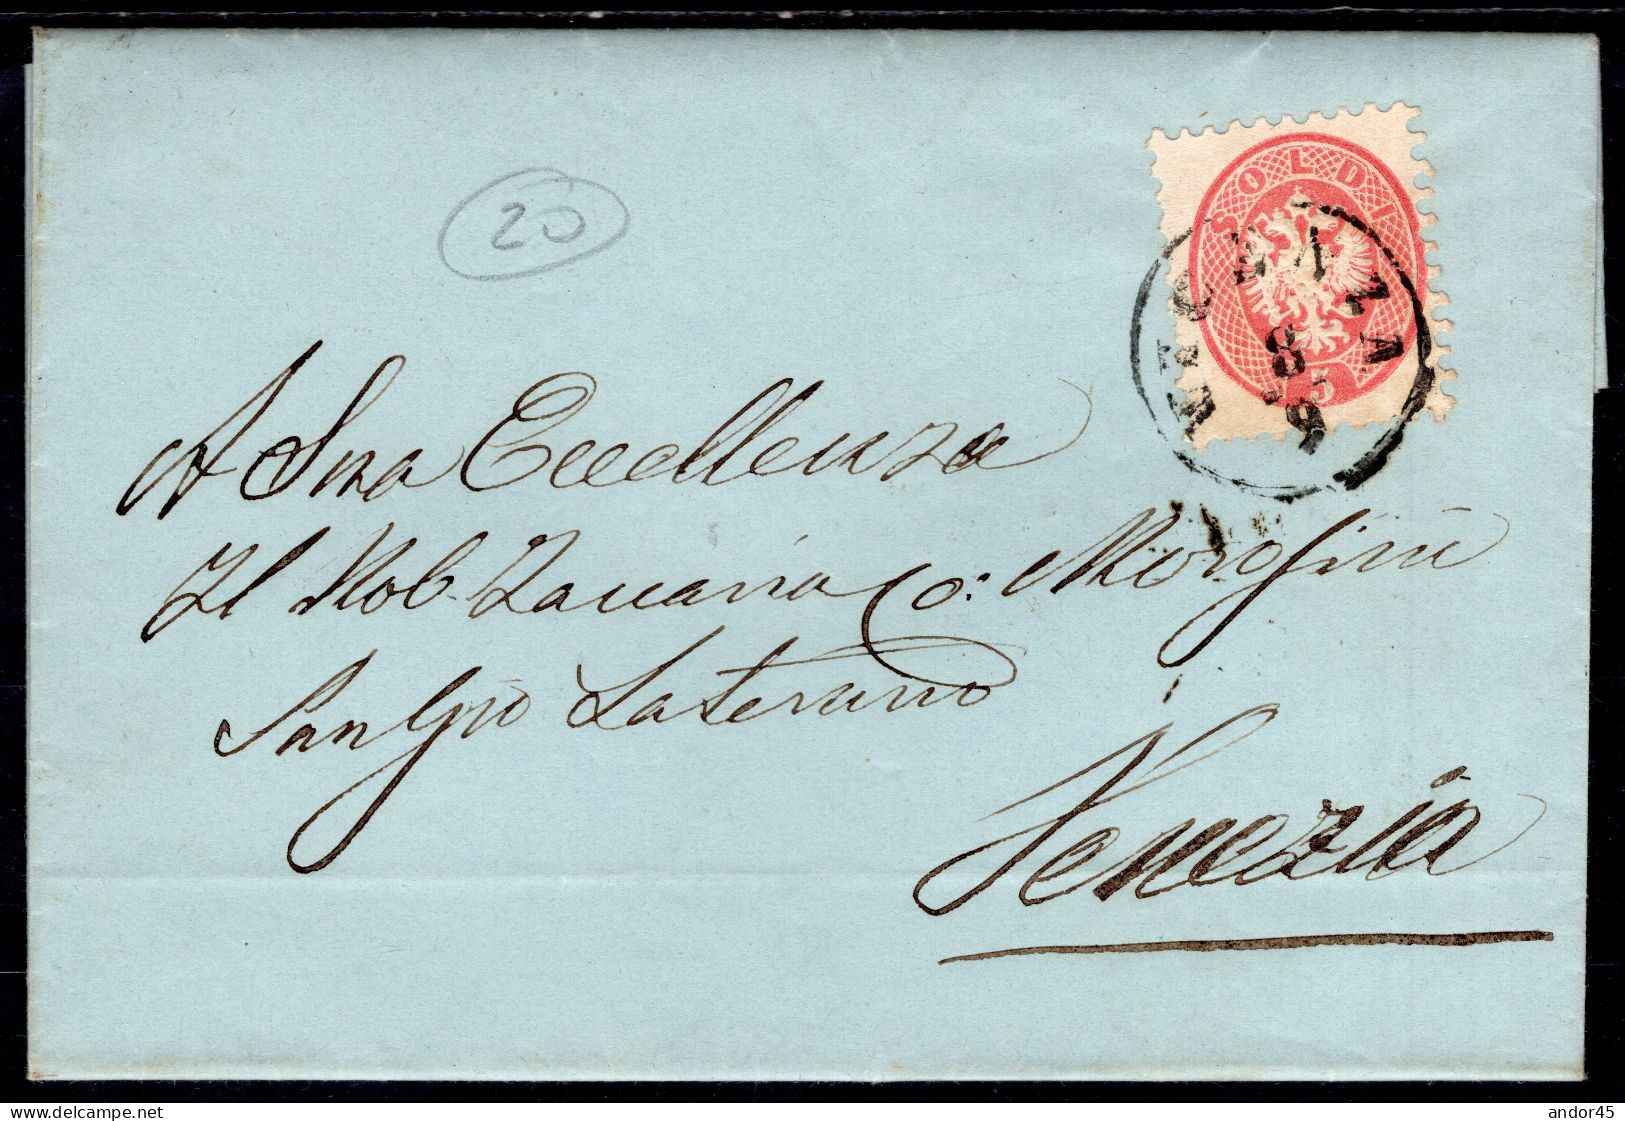 20
SOLDI
5
VICENZA
8
6
A Sua Eccellenza
Il Nob. Zaccaria Co: Morosini
San Gio Laterano
Venezia
delcampe.net
andor45